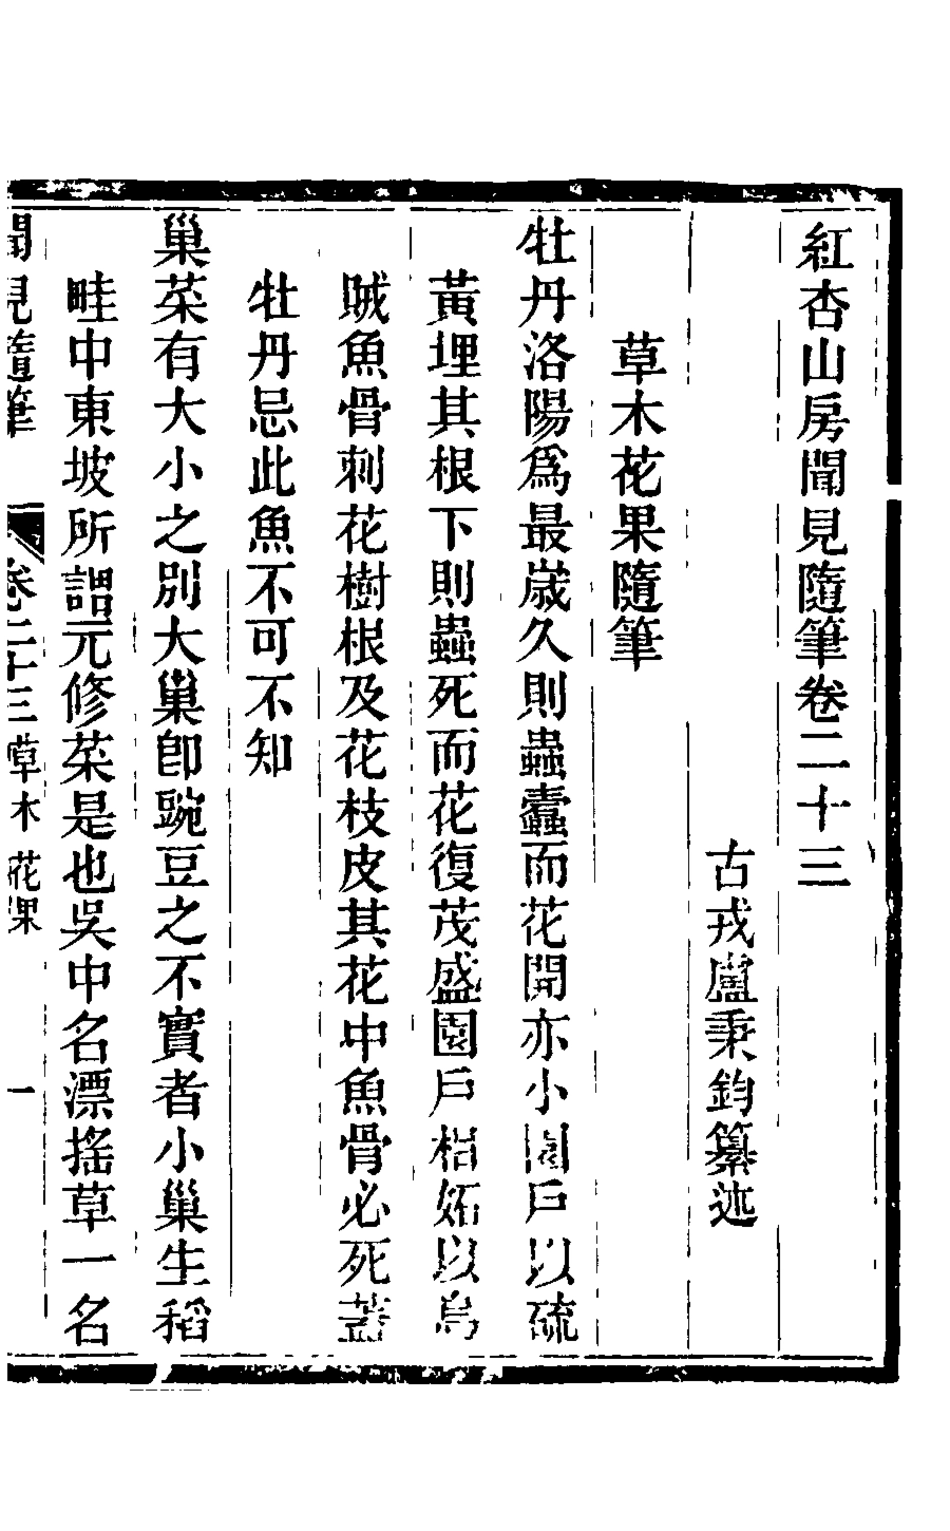 紅杏山房聞見隨筆卷二十三
古戎盧秉鈞纂述
草木花果隨筆
牡丹洛陽爲最歲久則蟲蠹而花開亦小園戶以硫
黃埋其根下則蟲死而花復茂盛園戶相妬以烏
賊魚骨刺花樹根及花枝皮其花中魚骨必死蓋
牡丹忌此魚不可不知
巢菜有大小之別大巢卽豌豆之不實者小巢生稻
畦中東坡所謂元修菜是也吳中名漂搖草一名
聞見隨筆 卷二十三 草木花果 一